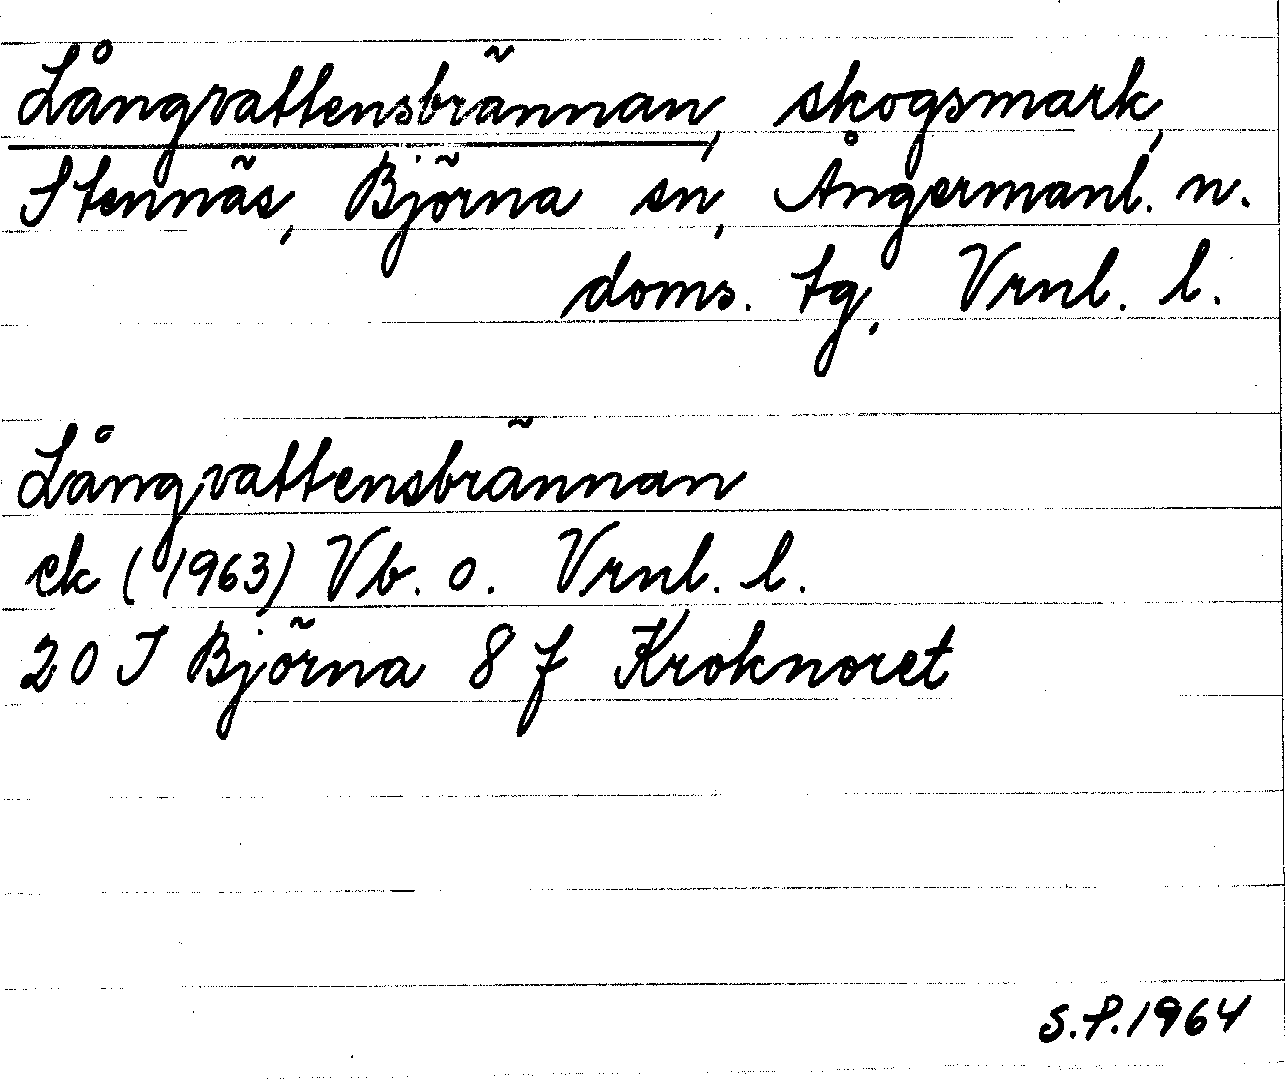 Långvattensbrännan, skogsmark,
Stennäs, Björna sn, Ångermanl. n.
doms. tg, Vrnl. l.
Långvattensbrännan
ek (1963) Vb. o. Vrnl. l.
20 I Björna 8 f Kroknoret
S.P.1964